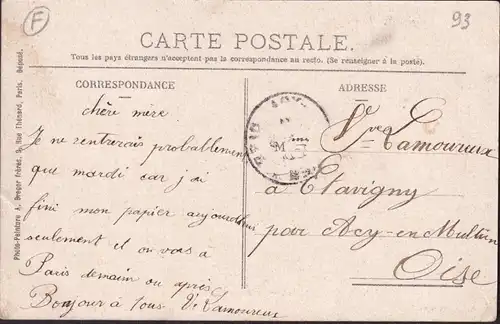 F
93
CARTE POSTALE.
Tous les pays étrangers n'acceptent pas la correspondance au recto. (Se renseigner à la poste).
CORRESPONDANCE
ADRESSE
Photo-Peinture A. Breger frères, 9, Rue Thénard, Paris. Déposé.
chère mère
Je ne rentrerais probablement
que mardi car j'ai
fini mon papier aujourd'hui
seulement et on vas a
Paris demain ou après
Bonjour à tous V. Lamoureux
Vve Lamoureux
a Etavigny
par Acy-en-Multien
Oise